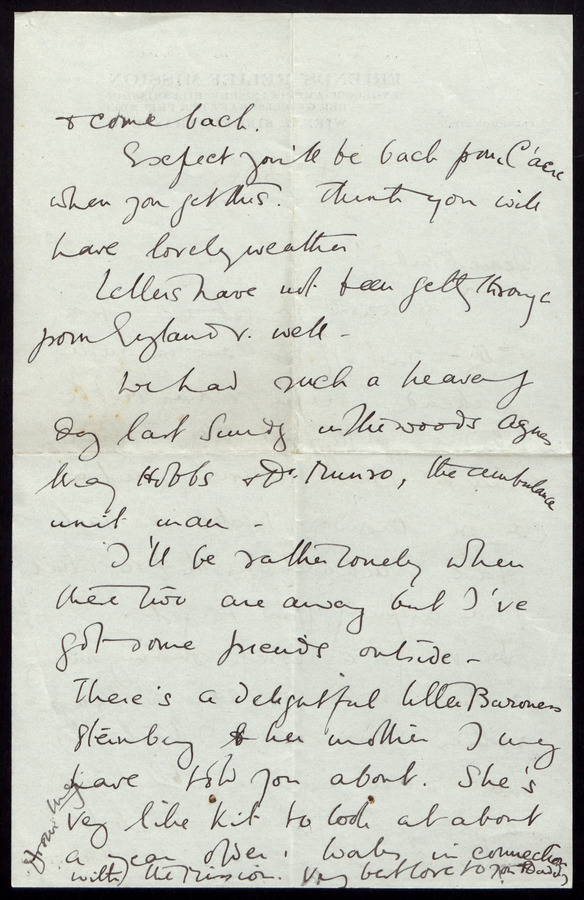 & come back.
Expect you'll be back from C'acre
when you get this. Think you will
have lovely weather
Letters have not been getting through
from England v. well -
We had such a heavenly
day last Sunday in the woods Agnes
May Hobbs & Dr. Munro, the ambulance
unit man -
I'll be rather lonely when
these two are away but I've
got some friends outside -
There's a delightful little Baroness
& her mother I may
have told you about. She's
very like Kit to look at about
a year older, works in connection
with the Mission. Very best love to you & Daddy
from